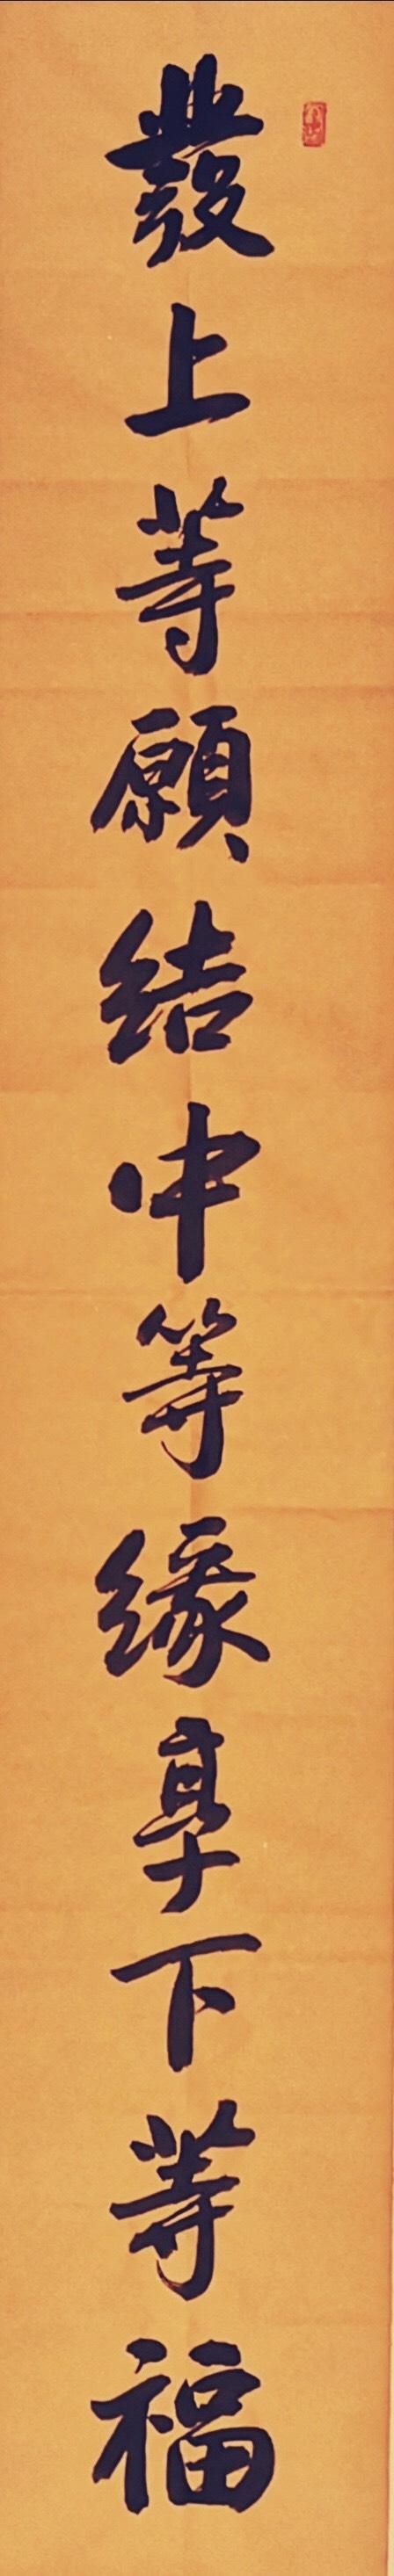 發上等願结中等缘享下等福